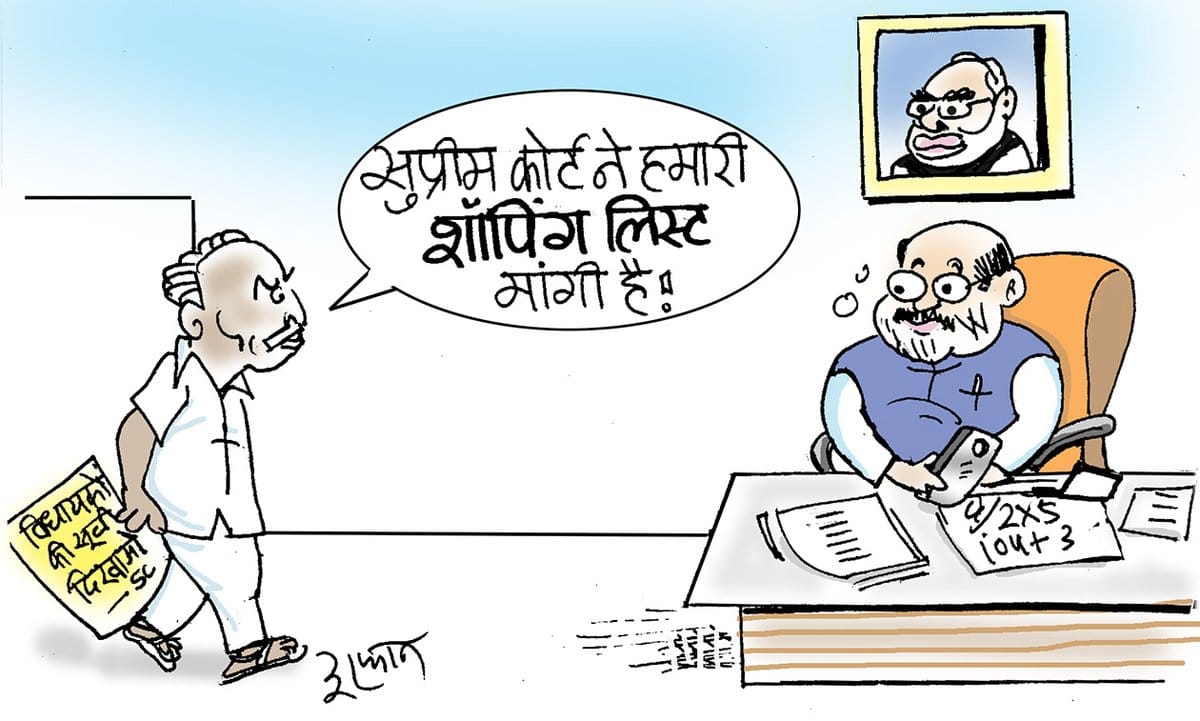 सुप्रीम कोर्ट ने हमारी
शॉपिंग लिस्ट
मांगी है!
विधायकों
की सूची
दिखाओ
_SC
/2X5
i out 3
इरफान